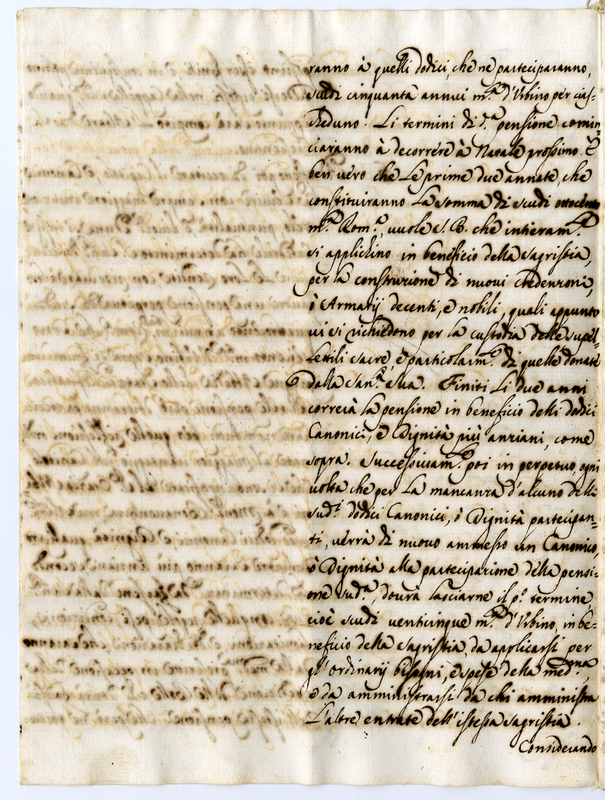 ranno à quelli dodici, che ne parteciparanno,
scudi cinquanta annui m.ta d'Urbino per cias-
cheduno. Li termini di d.a pensione comin
ciaranno à decorrere à Natale prossimo. È
ben vero che Le prime due annate, che
constituiranno La somma di scudi ottocento
m.ta Rom.a, vuole S. B. che intieram.te
si applichino in beneficio della Sagristia,
per la construzione di nuovi Credenzoni,
ò Armarij decenti, e nobili, quali appunto
vi si richiedono per la custodia delle supel-
Lettili sacre e particolarm.te di quelle donate
dalla San.tà Sua. Finiti Li due anni
correrà la pensione in beneficio delli dodici
Canonici, e Dignità più anziani, come
sopra. Successivam.te poi in perpetuo, ogni
volta che per La mancanza d'alcuno delli
sud.i dodici Canonici, ò Dignità partecipan-
ti, verrà di nuovo ammesso un Canonico,
ò Dignità alla partecipazione della pensi-
one sud.a, dovrà lasciarne il p.o termine
cioè scudi venticinque m.ta d'Urbino, in be-
neficio della Sagristia, da applicarsi per
gl'Ordinarij bisogni, e spese della med.ma,
e da amministrarsi da chi amministra
L'altre entrate dell'istessa Sagristia.
Considerando